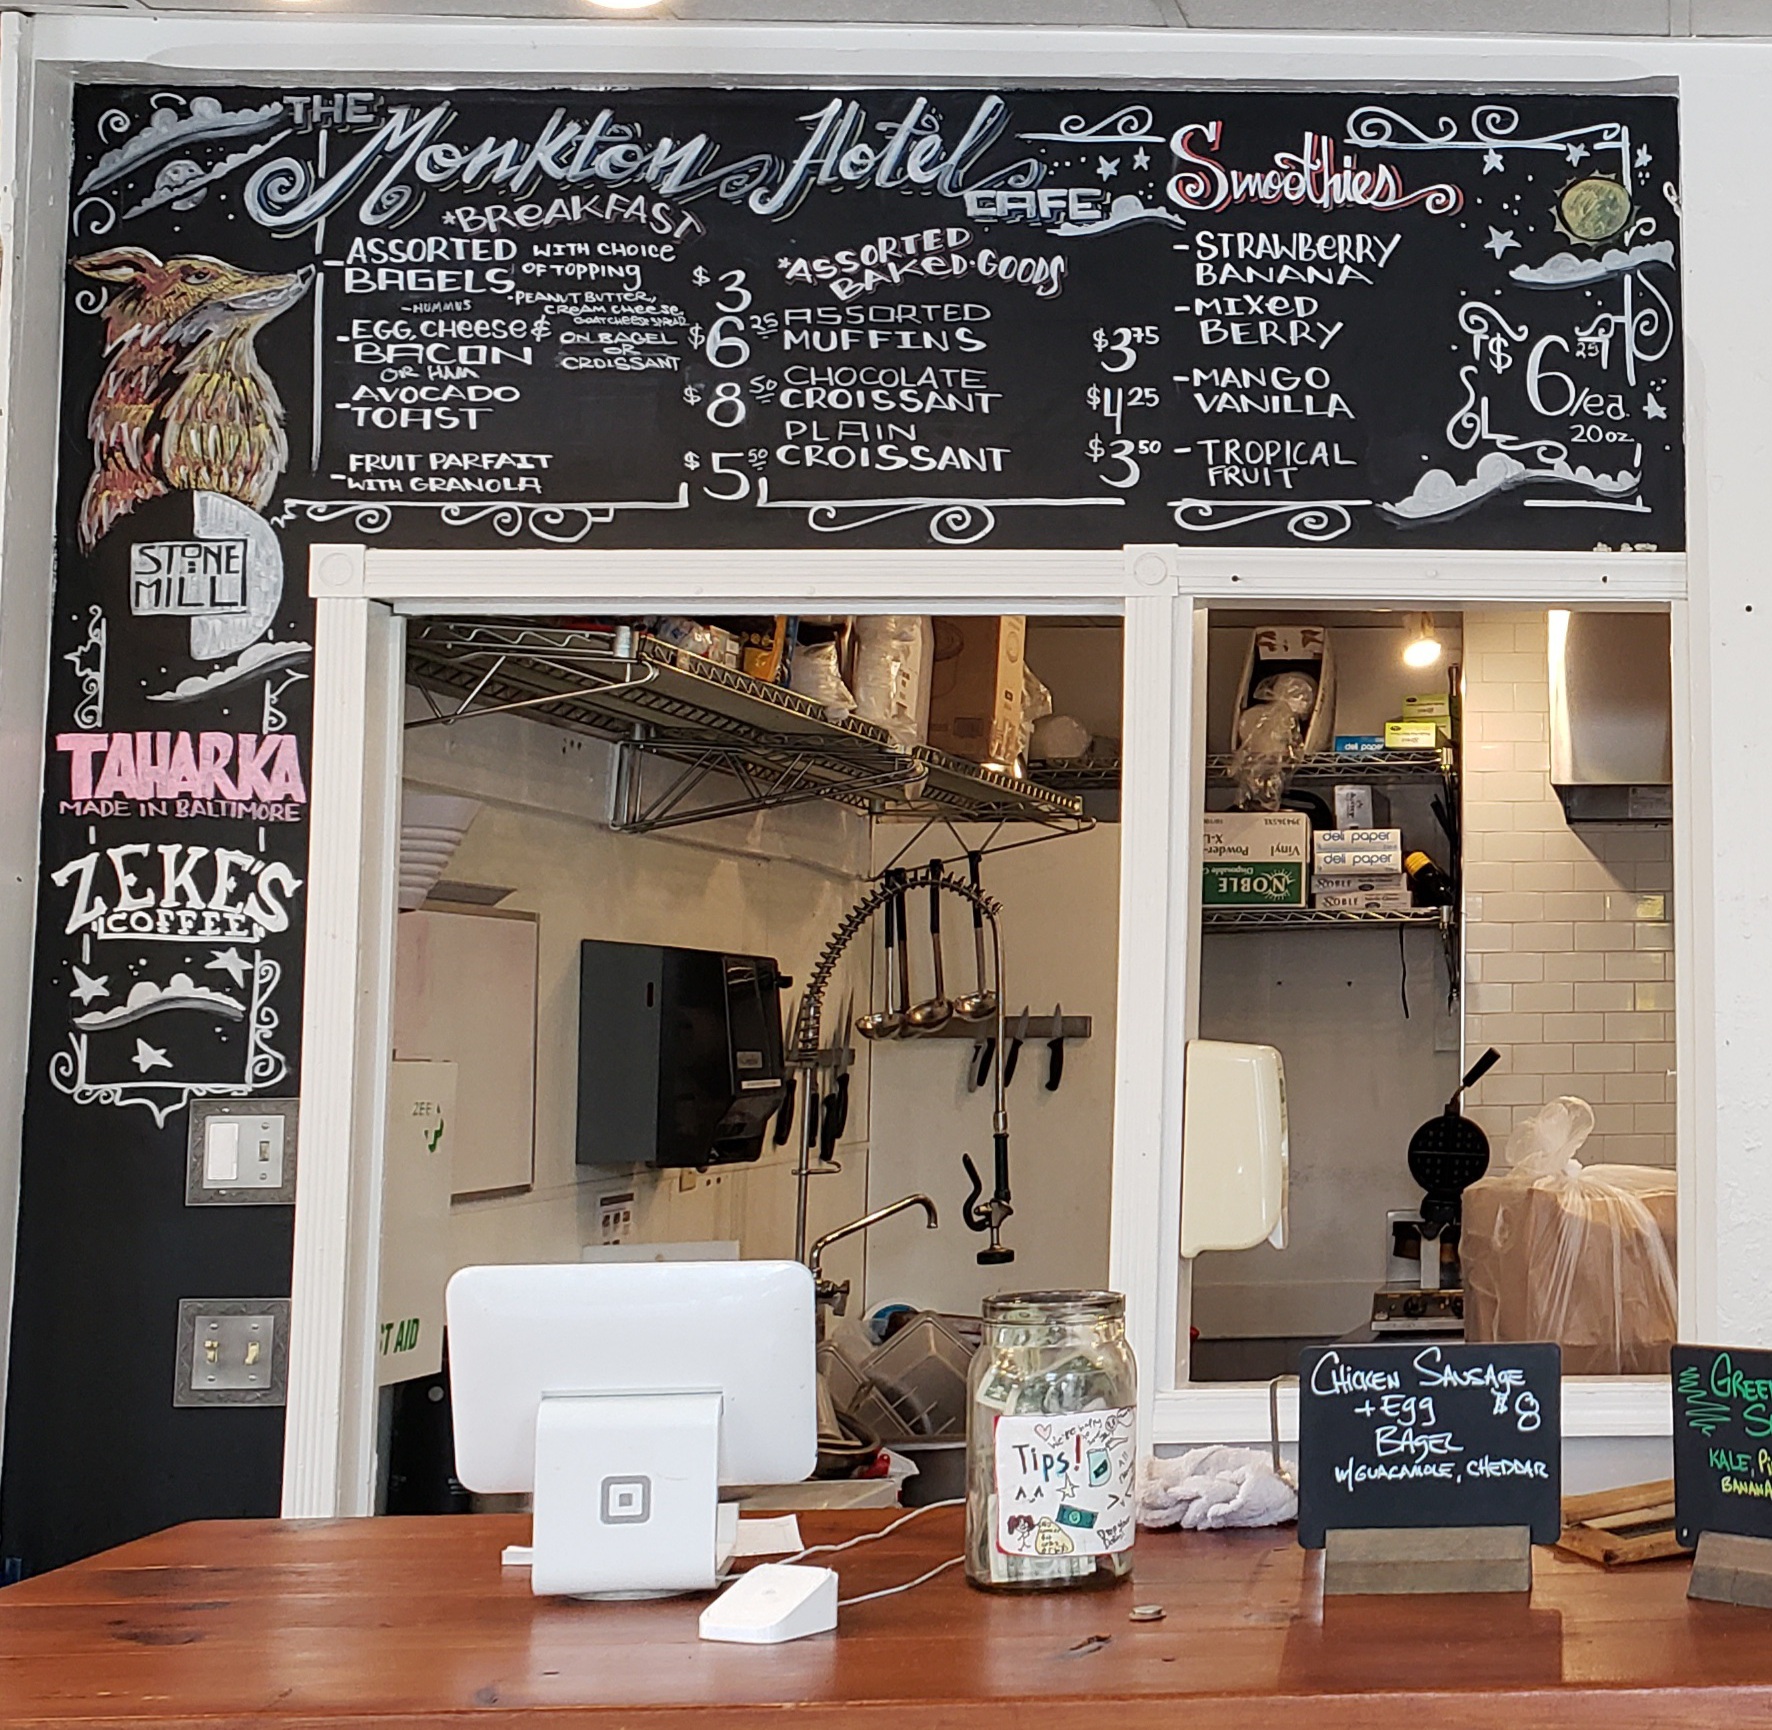 THE Monkton Hotel CAFE
*BREAKFAST
-ASSORTED BAGELS WITH CHOICE OF TOPPING $3
-HUMMUS
-PEANUT BUTTER,
CREAM CHEESE,
GOAT CHEESE SPREAD
-EGG, CHEESE &
BACON
OR HAM
ON BAGEL
OR
CROISSANT
$6 25
-AVOCADO
TOAST
$8 50
FRUIT PARFAIT
-WITH GRANOLA
$5 50
*ASSORTED
BAKED GOODS
ASSORTED
MUFFINS $3 75
CHOCOLATE
CROISSANT $4 25
PLAIN
CROISSANT $3 50
Smoothies
-STRAWBERRY
BANANA
-MIXED
BERRY
-MANGO
VANILLA
-TROPICAL
FRUIT
$6 25/ea.
20oz
STONE
MILL
TAHARKA
MADE IN BALTIMORE
ZEKE'S
COFFEE
deli paper
deli paper
deli paper
Vinyl
Powder-
X-L
NOBLE
NOBLE
ZEE
T AID
Tips!
CHICKEN SAUSAGE
+ EGG $8
BAGEL
W/GUACAMOLE, CHEDDAR
GREE
S
KALE, Pi
BANANA